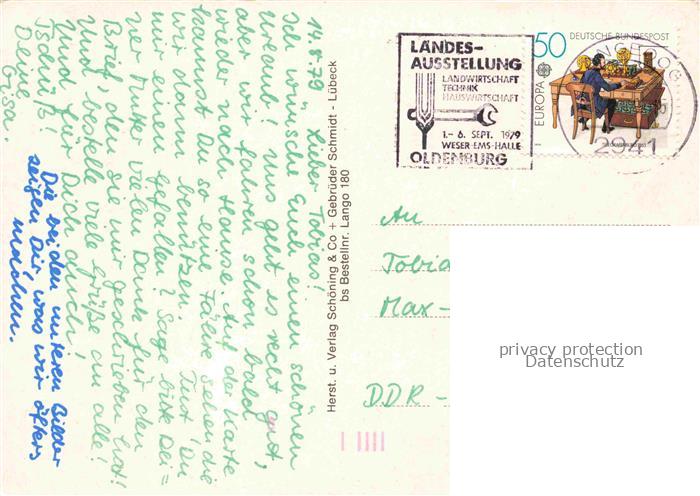 14.8.79 Lieber Tobias!
Ich wünsche Euch einen schönen
Urlaub! Uns geht es recht gut,
aber wir fahren schon bald
wieder nach Hause. Auf der Karte
kannst Du so eine Fähre sehen, die
wir oben benützen. Tust Du
mir einen Gefallen? Sage bitte Dei=
ner Mutter vielen Dank für den
Brief, den sie mir geschrieben hat!
Und bestelle viele Grüße an alle!
Und für Dich auch!
Tschüß!
Deine
Gisa.
Die beiden unteren Bilder
zeigen Dir, was wir öfters
machen.
Herst. u. Verlag Schöning & Co + Gebrüder Schmidt - Lübeck
bs Bestellnr. Lango 180
LANDES-
AUSSTELLUNG
LANDWIRTSCHAFT
TECHNIK
HAUSWIRTSCHAFT
1.- 6. SEPT. 1979
WESER-EMS-HALLE
OLDENBURG
50 DEUTSCHE BUNDESPOST
EUROPA
2941
An
Tobia
Max-
DDR -
privacy protection
Datenschutz